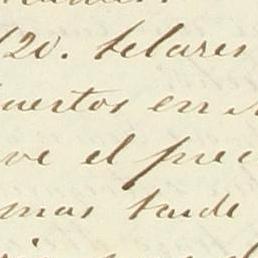 120. telares
uertos en
ve el prec
mas tarde